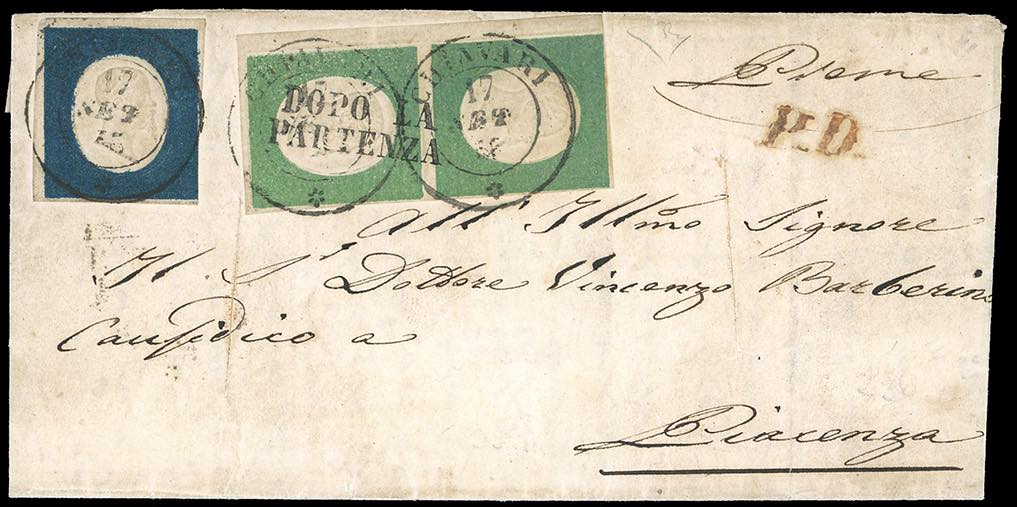 17
SET
55
CHIAVARI
CHIAVARI
17
SET
DOPO LA
PARTENZA
Preme
P.D.
All' Illmo Signore
Il Sr Dottore Vincenzo Barberin
Causidico a
Piacenza